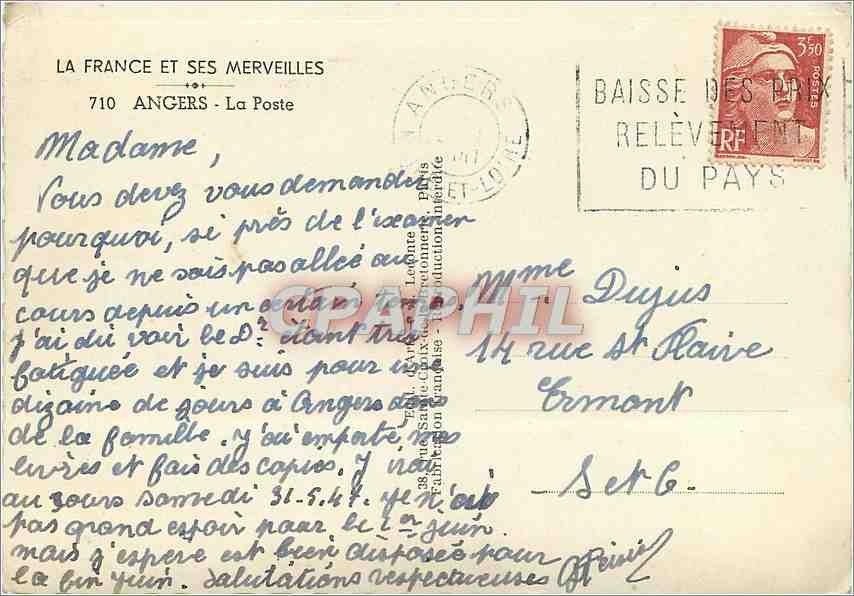 LA FRANCE ET SES MERVEILLES
710 ANGERS - La Poste
ANGERS
ET-LOIRE
BAISSE DES PRIX
RELÈVEMENT
DU PAYS
3F50
POSTES
RF
Madame,
Vous devez vous demander
pourquoi, si près de l'examen
que je ne sois pas allée au
cours depuis un certain temps.
j'ai dû voir le Dr étant très
fatiguée et je suis pour une
dizaine de jours à Angers dans
de la famille. J'ai emporté mes
livres et fais des copies. J'irai
au cours samedi 31-5.47. je n'ai
pas grand espoir pour le 1er juin
mais j'espère est bien disposée pour
la fin juin. Salutations respectueuses
Mme Dujus
14 rue St Flaive
Ermont
S et O.
Edit. d'Art Leconte
38, rue Sainte-Croix-de-la-Bretonnerie, Paris
Fabrication Française - Reproduction interdite
CPAPHIL